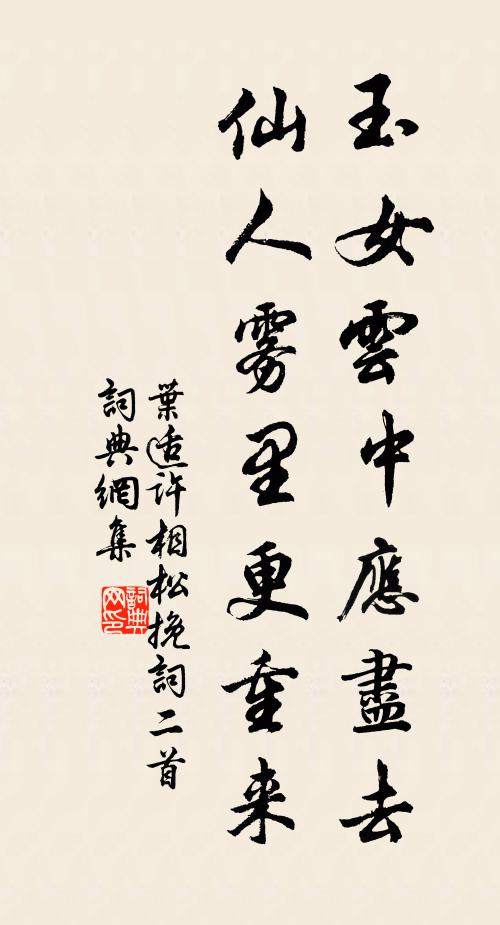 玉女雲中應盡去
仙人雾里更重来
葉適许相松挽詞二首
詞典網集
詞典网印